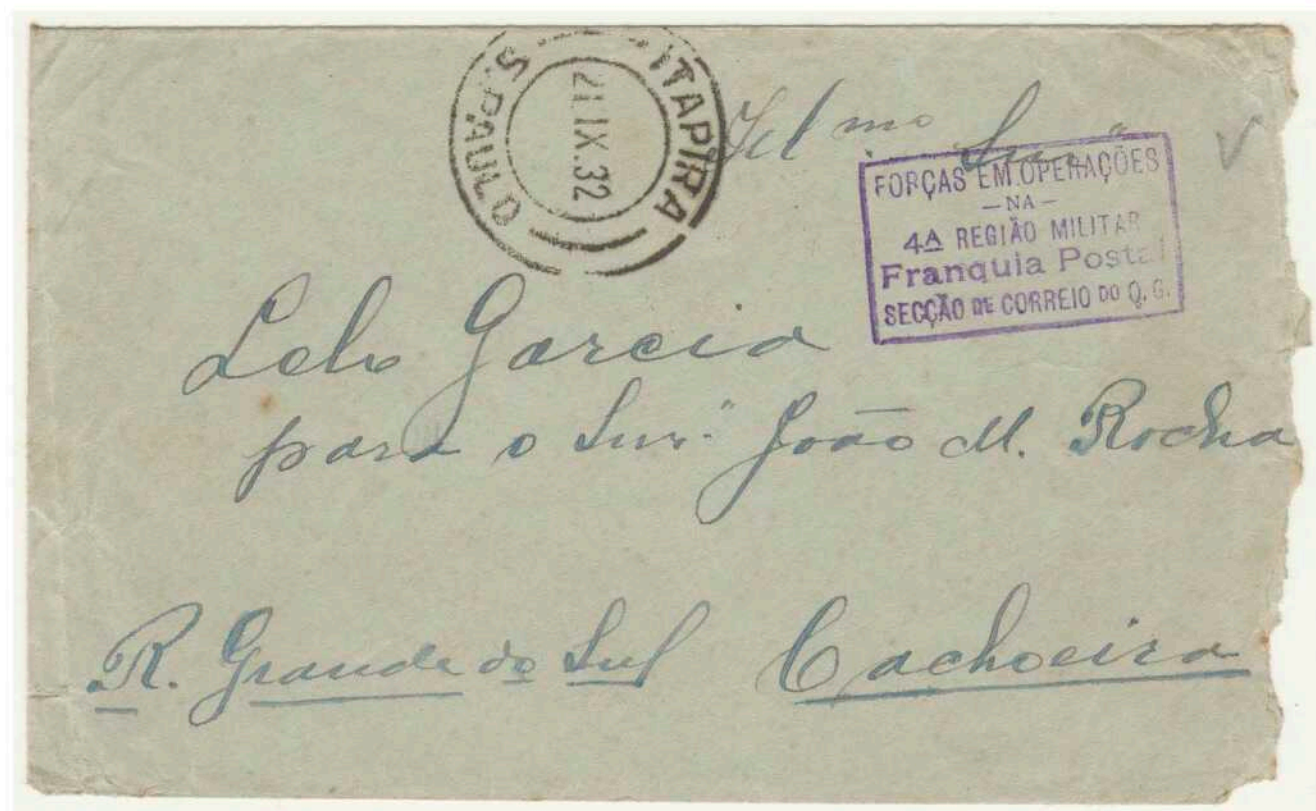 ITAPIRA
21.IX.32
S. PAULO
Il mo Snr
FORÇAS EM OPERAÇÕES
— NA —
4A REGIÃO MILITAR
Franquia Postal
SECÇÃO DE CORREIO DO Q. G.
Garcia
para o Snr. João M. Rocha
R. Grande do Sul Cachoeira